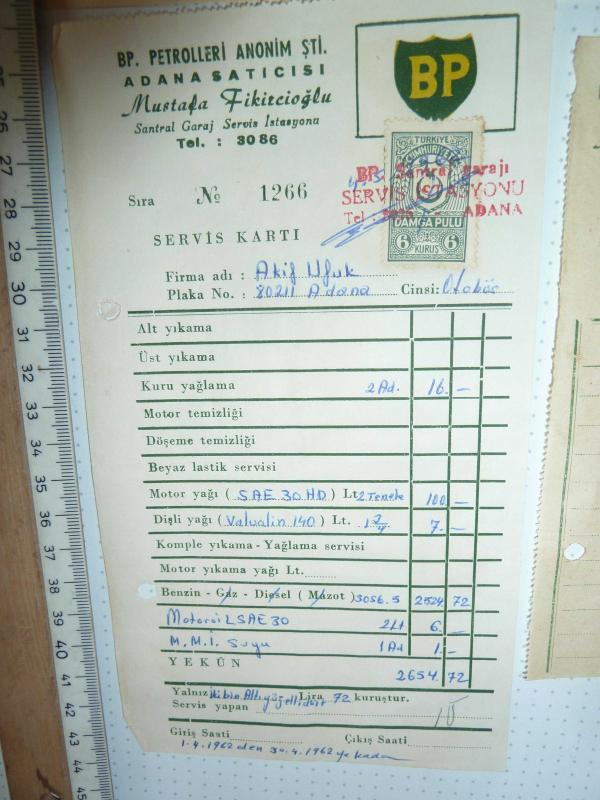 BP. PETROLLERİ ANONİM ŞTİ.
ADANA SATICISI
Mustafa Fikircioğlu
Santral Garaj Servis İstasyonu
Tel. : 3086
BP
TÜRKİYE
CUMHURİYETİ
DAMGA PULU
6 KURUŞ 6
BP Santral garajı
SERVİS İSTASYONU
Tel ADANA
Sıra № 1266
SERVİS KARTI
Firma adı : Akif Ufuk
Plaka No. : 80211 Adana Cinsi: Otobüs
Alt yıkama
Üst yıkama
Kuru yağlama 2 Ad. 16. —
Motor temizliği
Döşeme temizliği
Beyaz lastik servisi
Motor yağı ( SAE 30 HD ) Lt. 2 Teneke 100 —
Dişli yağı ( Valvalin 140 ) Lt. 1 2/4 7. —
Komple yıkama - Yağlama servisi
Motor yıkama yağı Lt.
Benzin - Gaz - Diesel ( Mazot ) 3056.5 2524 72
Motoroil SAE 30 2 Lt 6. —
M.M.İ. Suyu 1 Ad 1. —
YEKÛN 2654 72
Yalnız İkibin Altıyüzellidört Lira 72 kuruştur.
Servis yapan
Giriş Saati Çıkış Saati
1.4.1962 den 30.4.1962 ye kadar
25
26
27
28
29
30
31
32
33
34
35
36
37
38
39
40
41
42
43
44
45